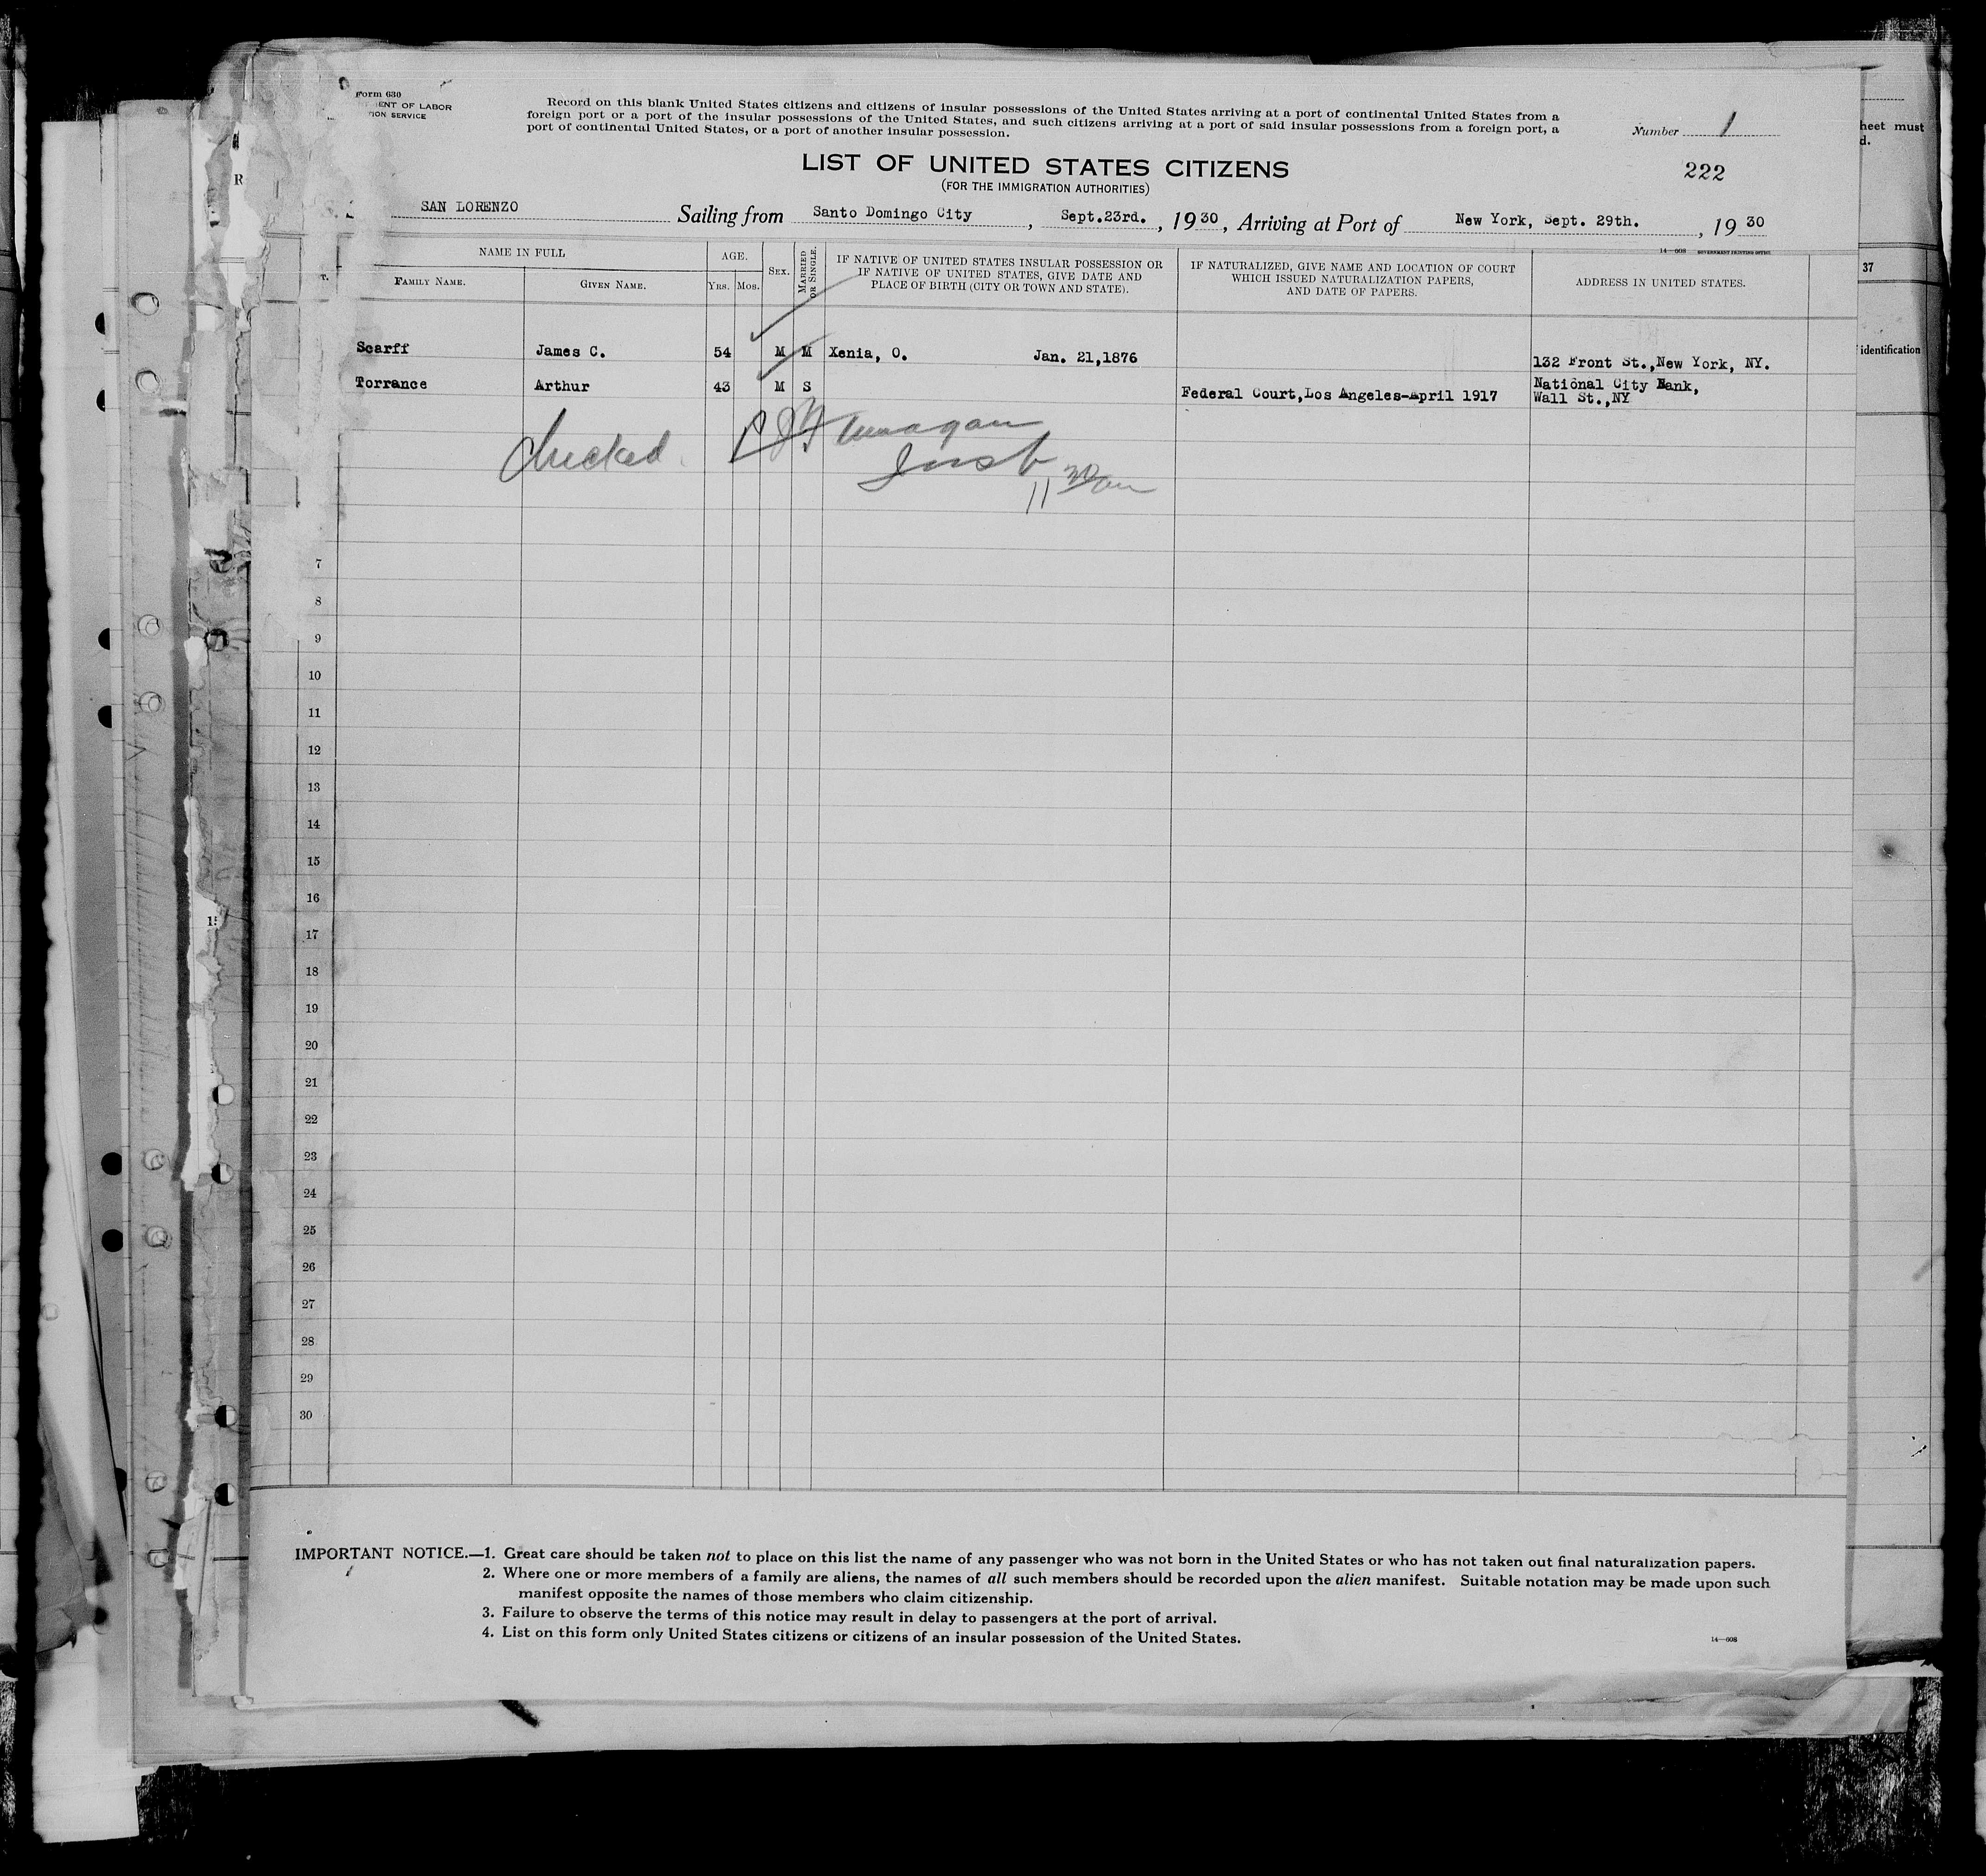 Form 630
ENT OF LABOR
ION SERVICE
Record on this blank United States citizens and citizens of insular possessions of the United States arriving at a port of continental United States from a
foreign port or a port of the insular possessions of the United States, and such citizens arriving at a port of said insular possessions from a foreign port, a
port of continental United States, or a port of another insular possession.
Number 1
LIST OF UNITED STATES CITIZENS
(FOR THE IMMIGRATION AUTHORITIES)
222
SAN LORENZO Sailing from Santo Domingo City, Sept.23rd., 1930, Arriving at Port of New York, Sept. 29th., 1930
14—608 GOVERNMENT PRINTING OFFICE
NAME IN FULL
FAMILY NAME.
GIVEN NAME.
AGE.
YRS. MOS.
SEX.
MARRIED OR SINGLE.
IF NATIVE OF UNITED STATES INSULAR POSSESSION OR
IF NATIVE OF UNITED STATES, GIVE DATE AND
PLACE OF BIRTH (CITY OR TOWN AND STATE).
IF NATURALIZED, GIVE NAME AND LOCATION OF COURT
WHICH ISSUED NATURALIZATION PAPERS,
AND DATE OF PAPERS.
ADDRESS IN UNITED STATES.
Scarff James C. 54 M M Xenia, O. Jan. 21,1876 132 Front St.,New York, NY.
Torrance Arthur 43 M S Federal Court,Los Angeles-April 1917 National City Bank,
Wall St.,NY
Checked
Insp
11 30 am
7
8
9
10
11
12
13
14
15
16
17
18
19
20
21
22
23
24
25
26
27
28
29
30
IMPORTANT NOTICE.—1. Great care should be taken not to place on this list the name of any passenger who was not born in the United States or who has not taken out final naturalization papers.
2. Where one or more members of a family are aliens, the names of all such members should be recorded upon the alien manifest. Suitable notation may be made upon such
manifest opposite the names of those members who claim citizenship.
3. Failure to observe the terms of this notice may result in delay to passengers at the port of arrival.
4. List on this form only United States citizens or citizens of an insular possession of the United States.
14—608
heet must
d.
37
identification